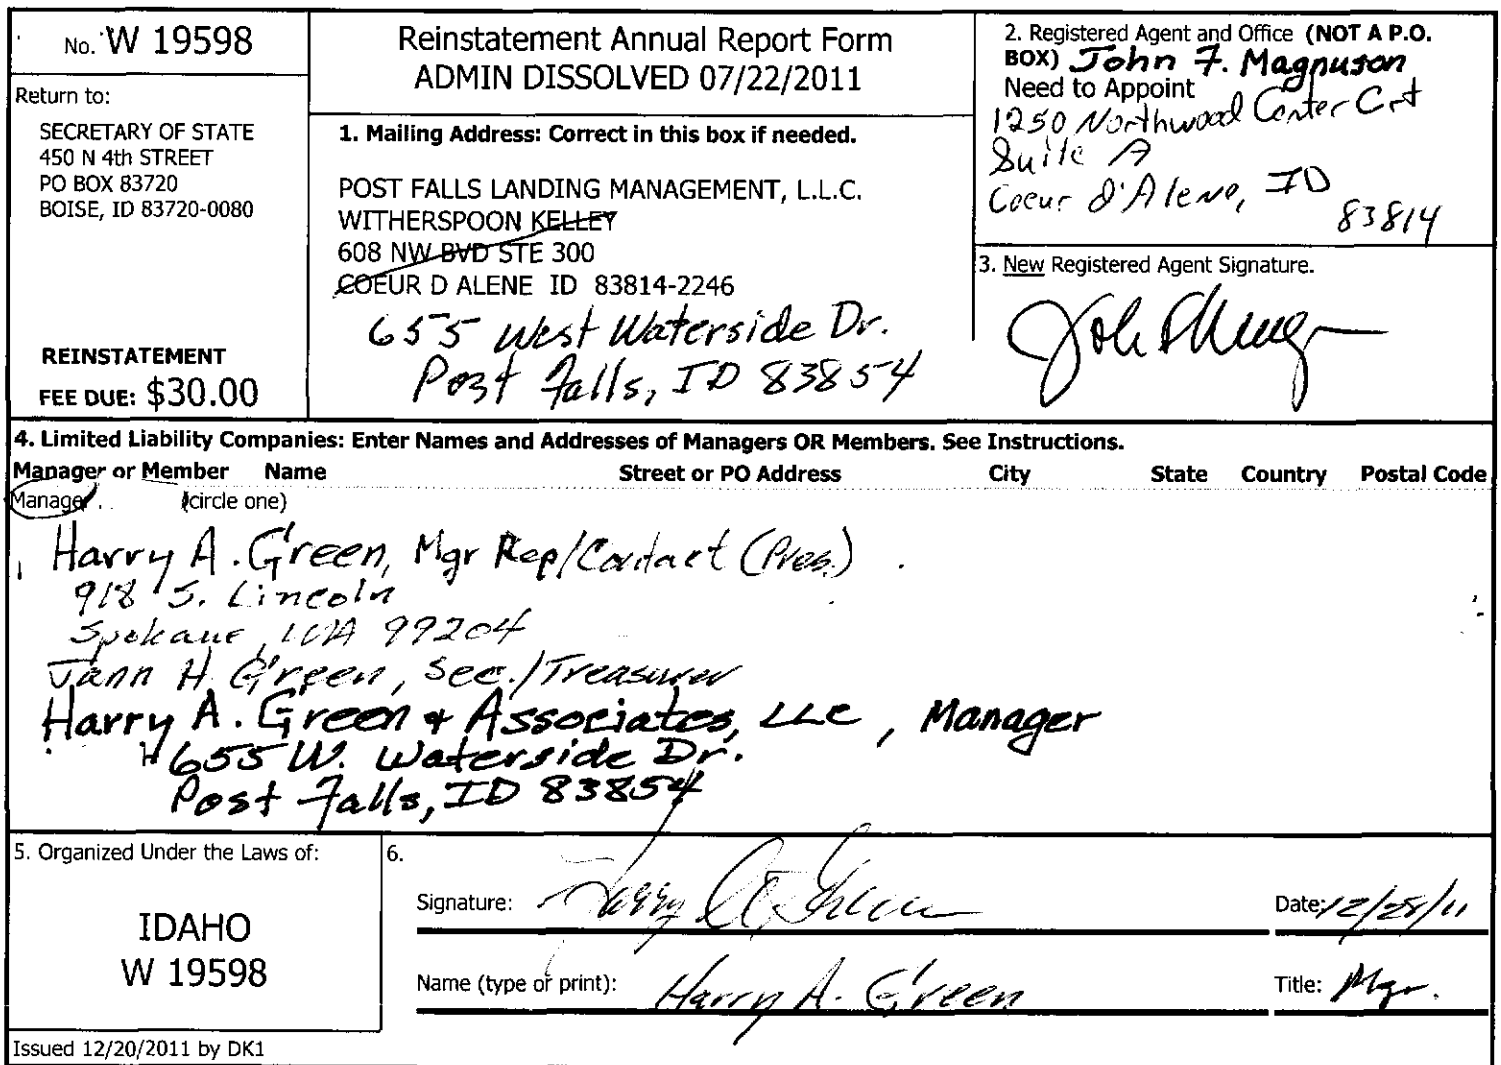 No. W 19598
Return to:
SECRETARY OF STATE
450 N 4th STREET
PO BOX 83720
BOISE, ID 83720-0080
REINSTATEMENT
FEE DUE: $30.00
Reinstatement Annual Report Form
ADMIN DISSOLVED 07/22/2011
1. Mailing Address: Correct in this box if needed.
POST FALLS LANDING MANAGEMENT, L.L.C.
WITHERSPOON KELLEY
608 NW BVD STE 300
COEUR D ALENE ID 83814-2246
655 West Waterside Dr.
Post Falls, ID 83854
2. Registered Agent and Office (NOT A P.O.
BOX) John F. Magnuson
Need to Appoint
1250 Northwood Center Crt
Suite A
Coeur d'Alene, ID
83814
3. New Registered Agent Signature.
4. Limited Liability Companies: Enter Names and Addresses of Managers OR Members. See Instructions.
Manager or Member Name Street or PO Address City State Country Postal Code
Manager (circle one)
Harry A. Green, Mgr Rep/Contact (Pres.)
918 S. Lincoln
Spokane, WA 99204
Jann H. Green, Sec./Treasurer
Harry A. Green & Associates, LLC, Manager
655 W. Waterside Dr.
Post Falls, ID 83854
5. Organized Under the Laws of:
IDAHO
W 19598
6.
Signature: Harry A. Green Date: 12/28/11
Name (type or print): Harry A. Green Title: Mgr.
Issued 12/20/2011 by DK1